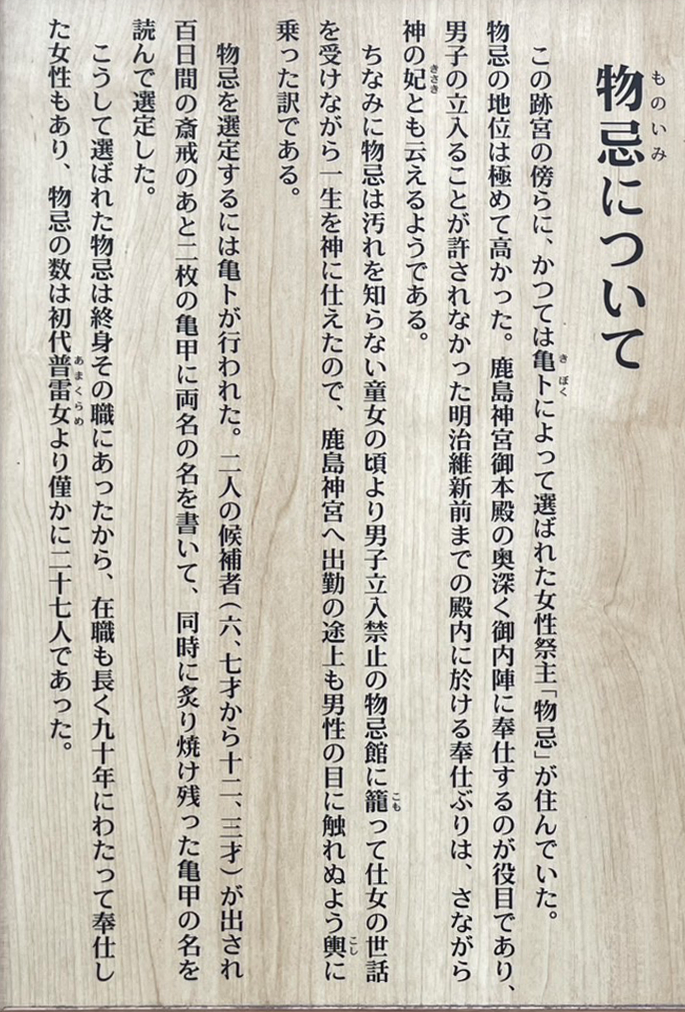 物忌について
ものいみ
この跡宮の傍らに、かつては亀卜によって選ばれた女性祭主「物忌」が住んでいた。
きぼく
物忌の地位は極めて高かった。鹿島神宮御本殿の奥深く御内陣に奉仕するのが役目であり、
男子の立入ることが許されなかった明治維新前までの殿内に於ける奉仕ぶりは、さながら
神の妃とも云えるようである。
きさき
ちなみに物忌は汚れを知らない童女の頃より男子立入禁止の物忌館に籠って仕女の世話
こも
を受けながら一生を神に仕えたので、鹿島神宮へ出勤の途上も男性の目に触れぬよう輿に
こし
乗った訳である。
物忌を選定するには亀卜が行われた。二人の候補者(六、七才から十二、三才)が出され
百日間の斎戒のあと二枚の亀甲に両名の名を書いて、同時に炙り焼け残った亀甲の名を
読んで選定した。
こうして選ばれた物忌は終身その職にあったから、在職も長く九十年にわたって奉仕し
た女性もあり、物忌の数は初代普雷女より僅かに二十七人であった。
あまくらめ